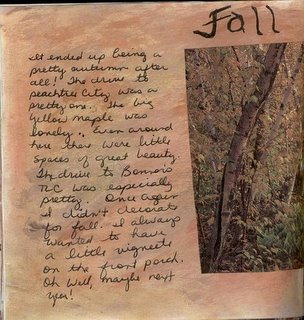 Fall
It ended up being a
pretty autumn after
all! The drive to
peachtree City was a
pretty one. The big
yellow maple was
lovely. Even around
here there were little
spaces of great beauty.
The drive to
TLC was especially
pretty. Once again
I didn't decorate
for fall. I always
wanted to have
a little vignette
on the front porch.
Oh well, maybe next
year!